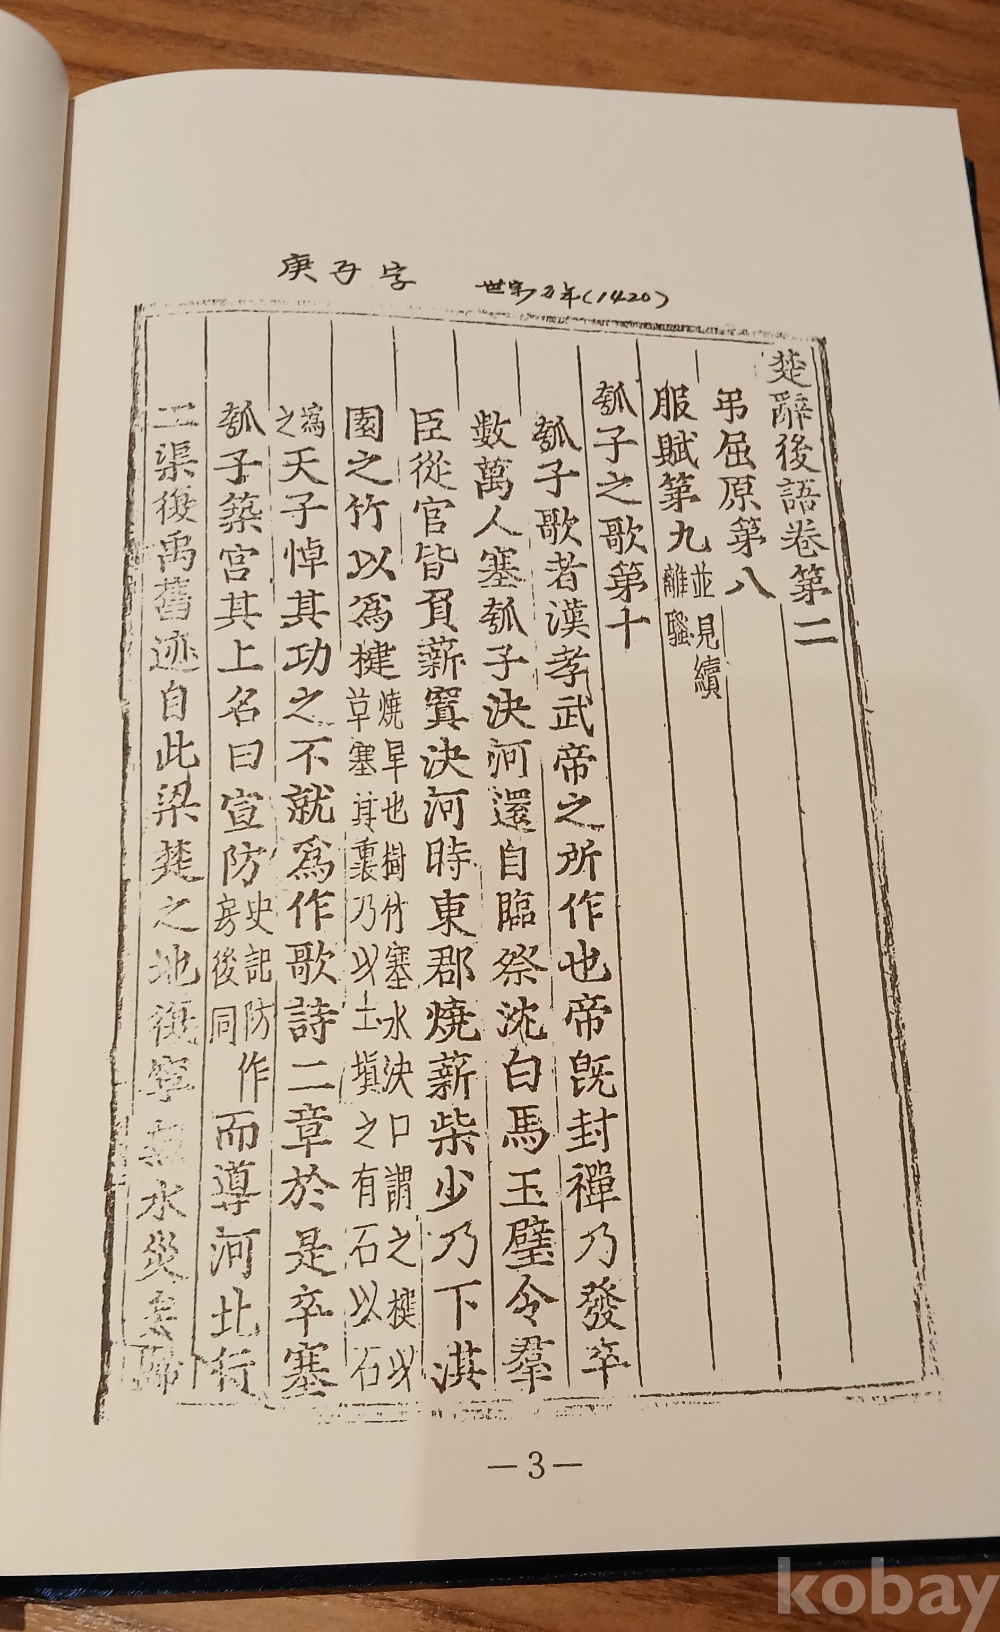 庚子字 世宗2年(1420)
楚辭後語卷第二
弔屈原第八
服賦第九並見續離騷
瓠子之歌第十
瓠子歌者漢孝武帝之所作也帝旣封禪乃發卒
數萬人塞瓠子決河還自臨祭沈白馬玉璧令羣
臣從官皆負薪窴決河時東郡燒薪柴少乃下淇
園之竹以爲楗燒旱也樹竹塞水決口謂之楗以草塞其裏乃以土塡之有石以石
爲之天子悼其功之不就爲作歌詩二章於是卒塞
瓠子築宮其上名曰宣防史記防作房後同而導河北行
二渠復禹舊迹自此梁楚之地復寧無水災
—3—
kobay